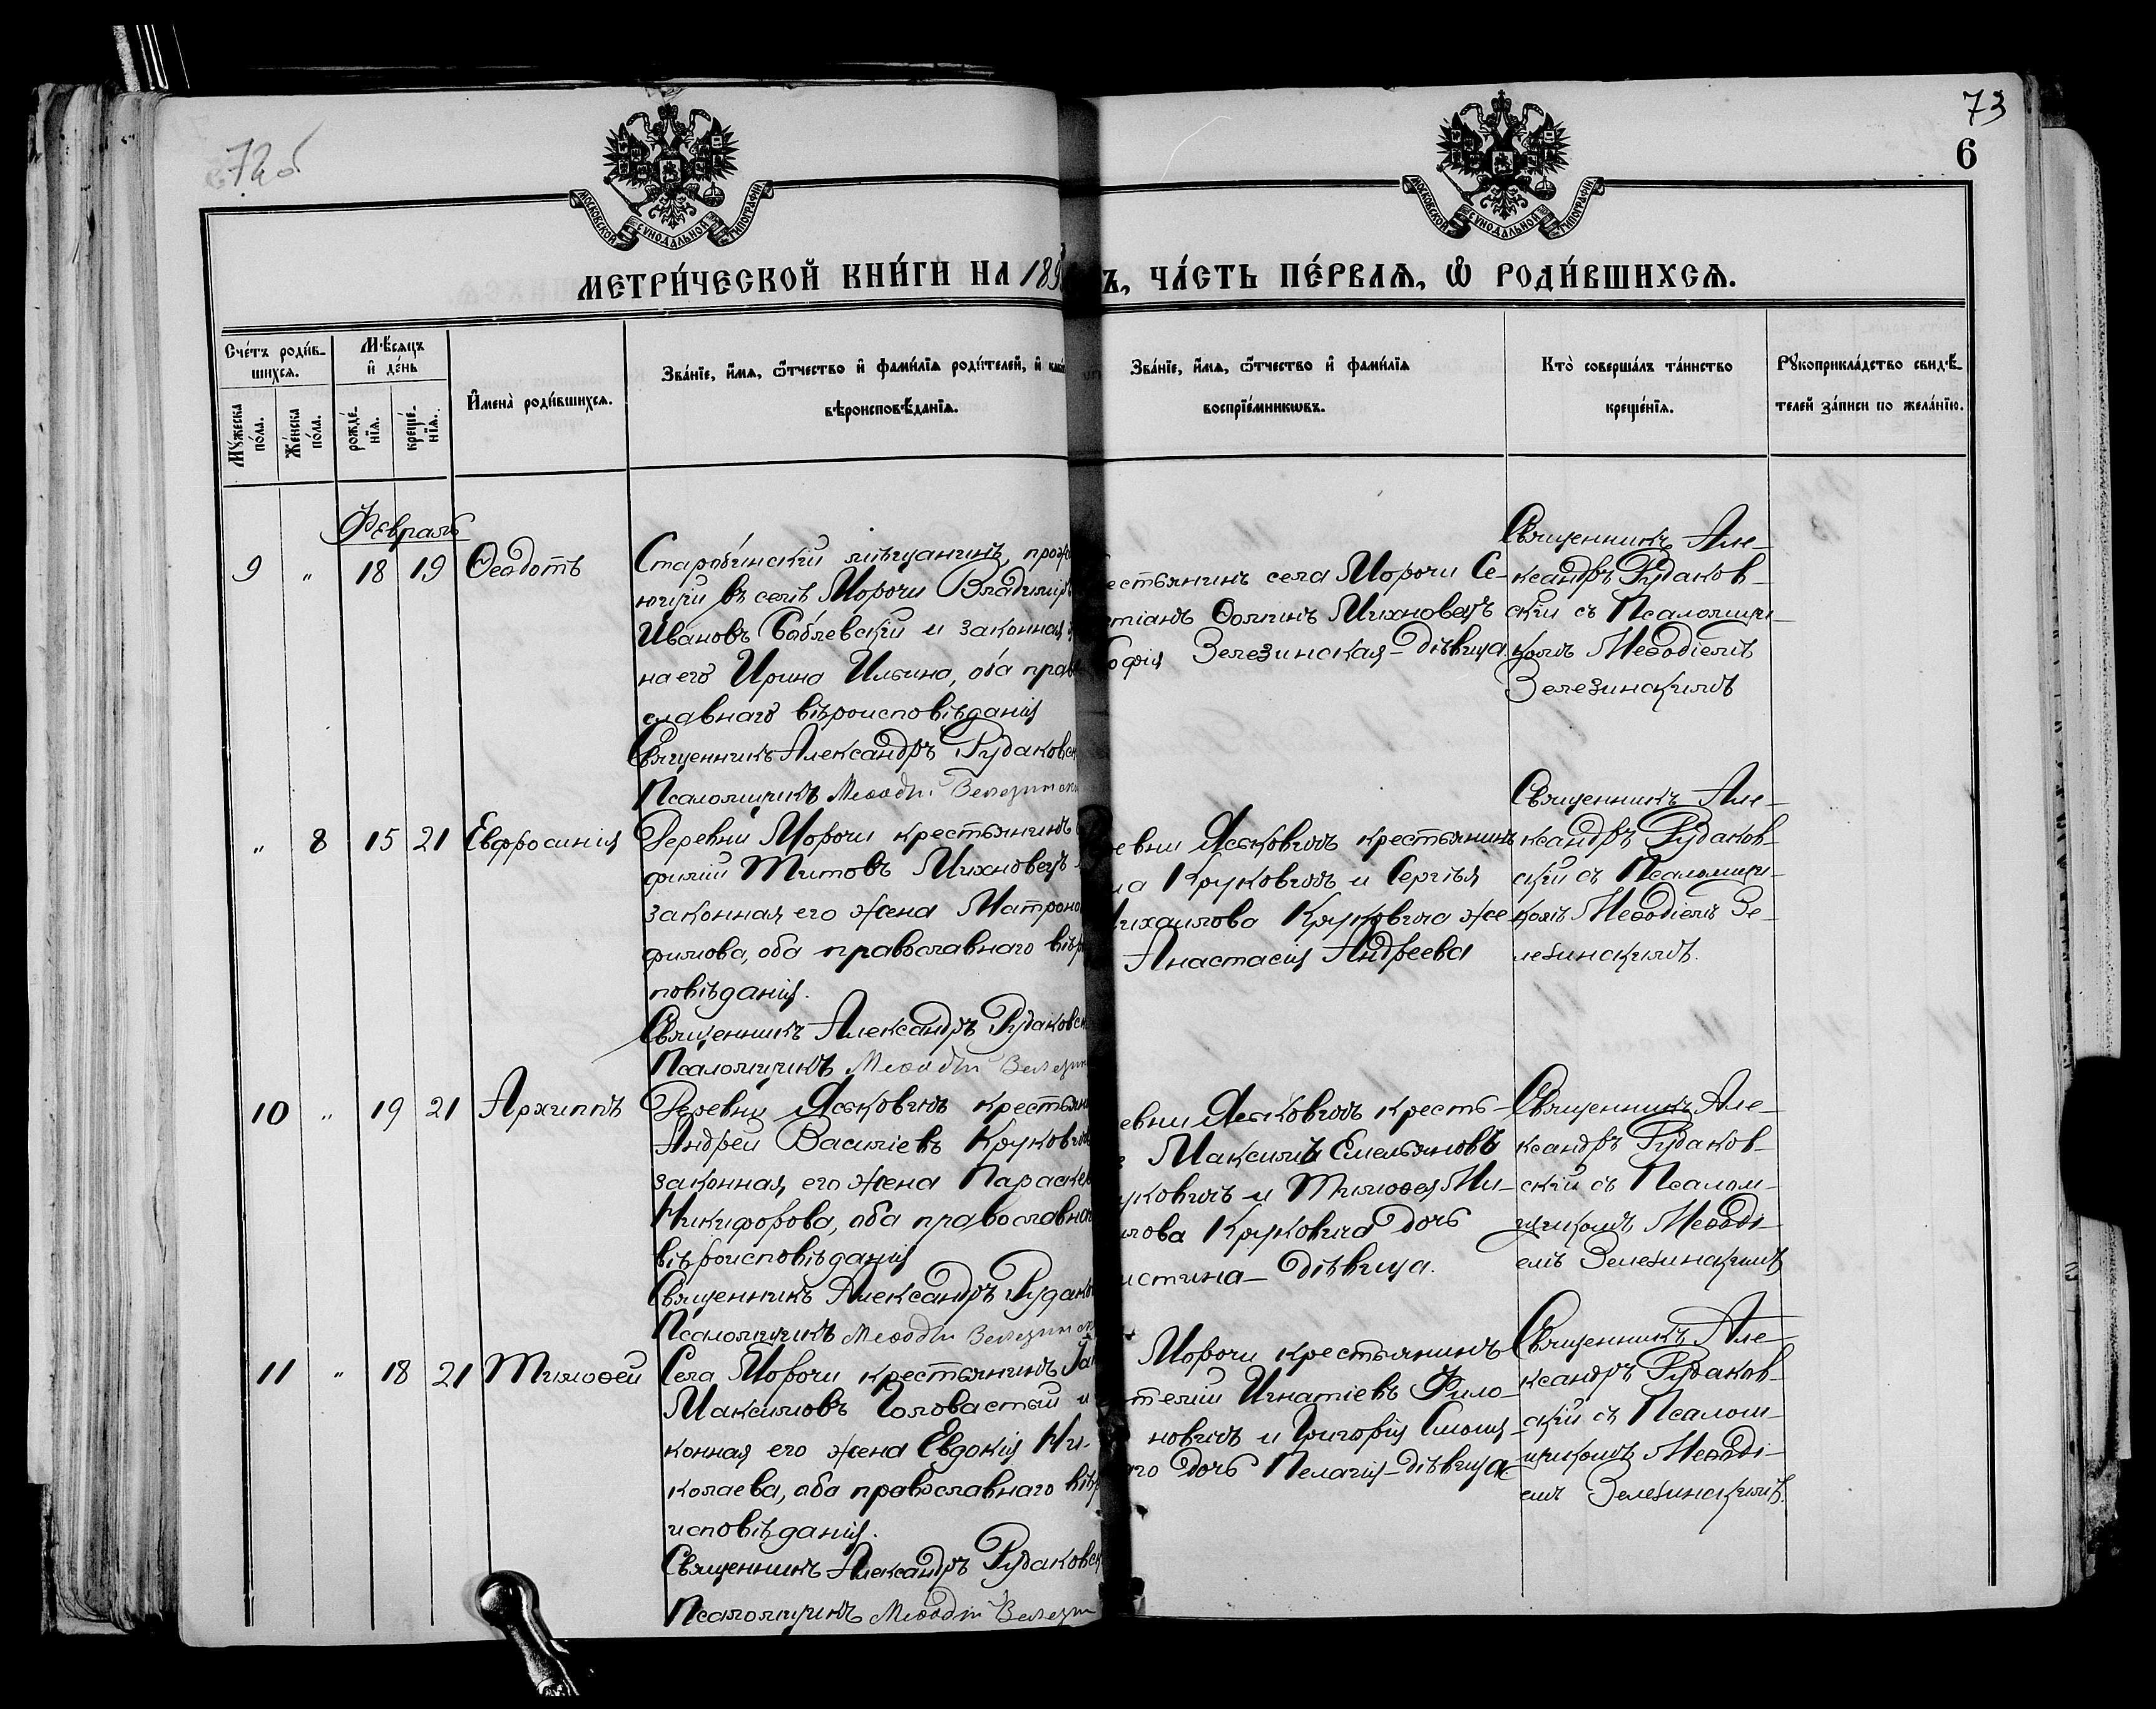 72об
73
6
МОСКОВСКОЙ СѴНОДАЛЬНОЙ ТИПОГРАФІИ
МОСКОВСКОЙ СѴНОДАЛЬНОЙ ТИПОГРАФІИ
МЕТРИ́ЧЕСКОЙ КНИ́ГИ НА 189
Ъ, ЧА́СТЬ ПЕ́РВАѦ, Ѡ҆ РОДИ́ВШИХСѦ.
Сче́тъ роди́в-
шихсѧ.
Мꙋ́жеска
по́ла.
Же́нска
по́ла.
Мѣ́сѧцъ
и҆ де́нь
рожде́-
нїѧ.
креще́-
нїѧ.
И҆мена̀ роди́вшихсѧ.
Зва́нїе, и҆́мѧ, ѻ҆́тчество и҆ фами́лїѧ роди́телей, и҆
вѣроисповѣ́данїѧ.
Зва́нїе, и҆́мѧ, ѻ҆́тчество и҆ фами́лїѧ
воспрїе́мникѡвъ.
Кто̀ соверша́лъ та́инство
креще́нїѧ.
Рꙋкоприкла́дство свидѣ́-
телей за́писи по жела́нїю.
Февраль
9 " 18 19 Ѳеодотъ
Старобинскій мѣщанинъ, прожи
ющій въ селѣ Морочи Владимір
Ивановъ Боблевскій и законная
на его Ирина Ильина, оба прав
славнаго вѣроисповѣданія
Священникъ Александръ Рудаковск
Псаломщикъ Меѳодій Зелезинск
естьянинъ села Морочи Се-
стіанъ Ѳоминъ Михновецъ
офія Зелезинская - дѣвица.
Священникъ Але-
ксандръ Рудаков-
скій съ Псаломщи-
комъ Меѳодіемъ
Зелезинскимъ
" 8 15 21 Евфросинія
Деревни Морочи крестьянинъ
фимій Титовъ Михновецъ
законная его жена Матрона
фимова, оба православнаго вѣр
повѣданія.
Священникъ Александръ Рудаковск
Псаломщикъ Меѳодій Зелезин
евни Яськовичъ крестьянинъ
ма Круковичъ и Сергѣя
Михаилова Круковича же-
Анастасія Андреева
Священникъ Але-
ксандръ Рудаков-
скій съ Псаломщи-
комъ Меѳодіемъ Зе-
лезинскимъ.
10 " 19 21 Архиппъ
Деревни Яськовичъ крестьян
Андрей Василіевъ Круковичъ
законная его жена Параскев
Никифорова, оба православна
вѣроисповѣданія
Священникъ Александръ Рудаков
Псаломщикъ Меѳодій Зелезинск
евни Яськовичъ кресть-
Максимъ Емельяновъ
уковичъ и Тимоѳея Ми-
лова Круковича дочь
истина - дѣвица.
Священникъ Але-
ксандръ Рудаков-
скій съ Псалом-
щикомъ Меѳоді-
емъ Зелезинскимъ
11 " 18 21 Тимоѳей
Села Морочи крестьянинъ Іак
Максимовъ Головастый и
конная его жена Евдокія Ни-
колаева, оба православнаго вѣр
исповѣданія.
Священникъ Александръ Рудаковск
Псаломщикъ Меѳодій Зелезин
Морочи крестьянинъ
нтелій Игнатіевъ Фило-
новичъ и Григорія
го дочь Пелагія - дѣвица
Священникъ Але-
ксандръ Рудаков-
скій съ Псалом-
щикомъ Меѳоді-
емъ Зелезинскимъ.